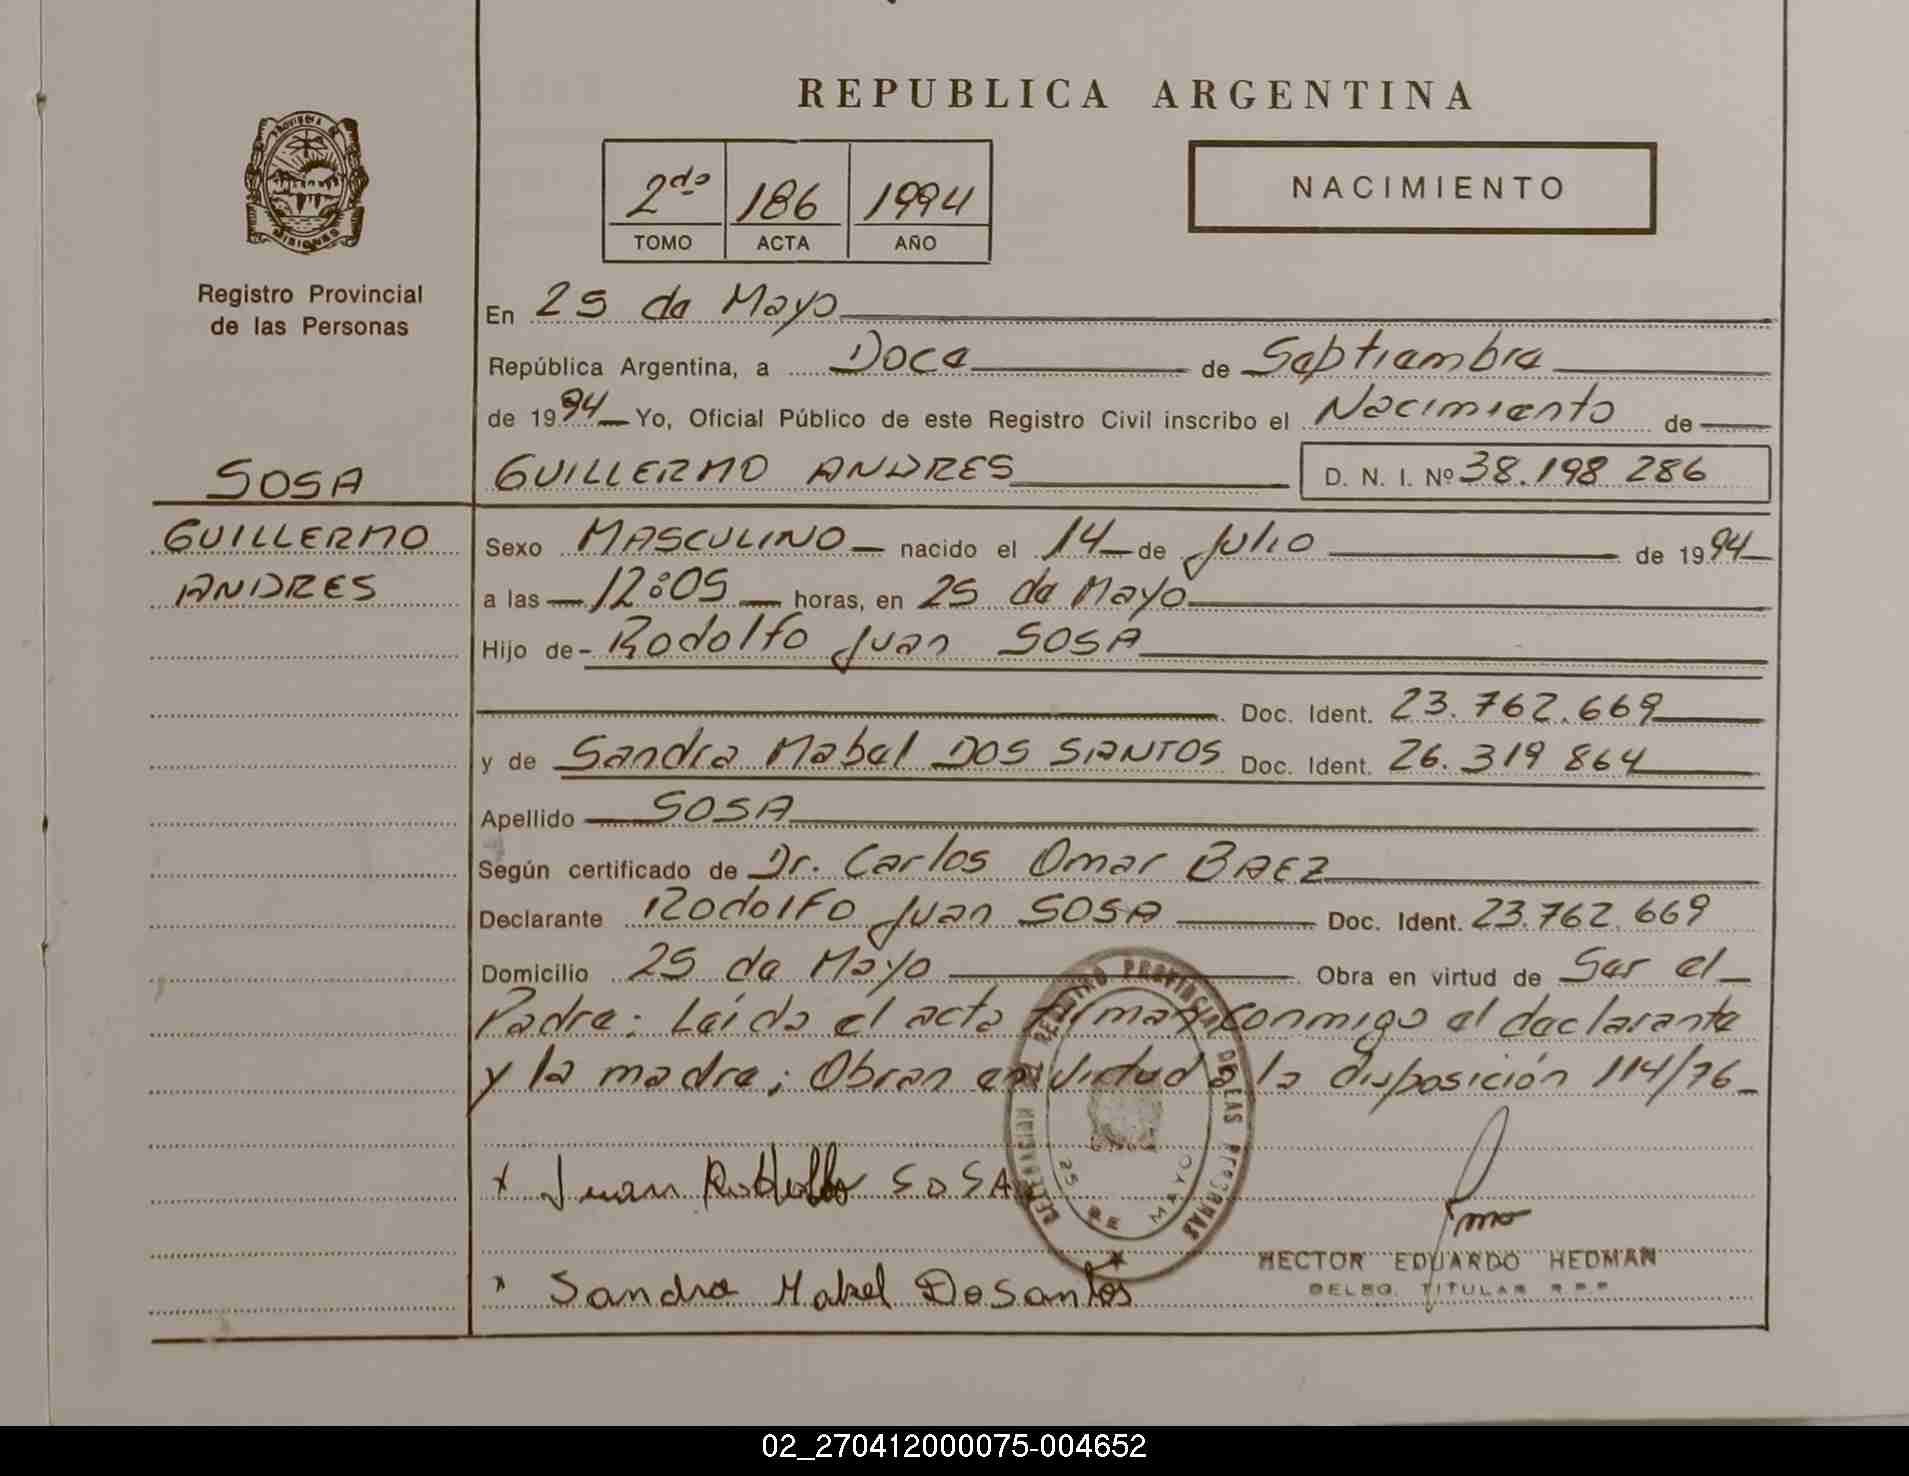 REPUBLICA ARGENTINA
PROVINCIA DE
MISIONES
Registro Provincial
de las Personas
2do 186 1994
TOMO ACTA AÑO
NACIMIENTO
En 25 de Mayo
República Argentina, a Doce de Septiembre
de 1994 Yo, Oficial Público de este Registro Civil inscribo el Nacimiento de
SOSA
GUILLERMO ANDRES D. N. I. Nº 38.198 286
GUILLERMO
ANDRES
Sexo MASCULINO nacido el 14 de Julio de 1994
a las 12:05 horas, en 25 de Mayo
Hijo de Rodolfo Juan SOSA
Doc. Ident. 23.762.669
y de Sandra Mabel DOS SANTOS Doc. Ident. 26.319 864
Apellido SOSA
Según certificado de Dr. Carlos Omar BAEZ
Declarante Rodolfo Juan SOSA Doc. Ident. 23.762.669
Domicilio 25 de Mayo Obra en virtud de Ser el
Padre; Leída el acta firman conmigo el declarante
y la madre; Obran en virtud a la disposición 114/76
DELEGACION DE REGISTRO PROVINCIAL DE LAS PERSONAS
25 DE MAYO
x Juan Rodolfo SOSA
x Sandra Mabel DoSantos
HECTOR EDUARDO HEDMAN
DELEG. TITULAR R.P.P.
02_270412000075-004652